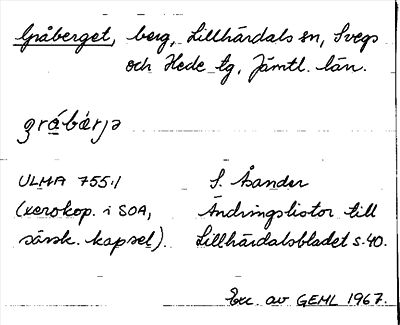 Gråberget, berg, Lillhärdals sn, Svegs
och Hede tg, Jämtl. län.
gråbärjə
ULMA 755:1 S. Åsander
(xerokop. i SOA, Ändringslistor till
särsk. kapsel). Lillhärdalsbladet s. 40.
Exc. av GEHL 1967.